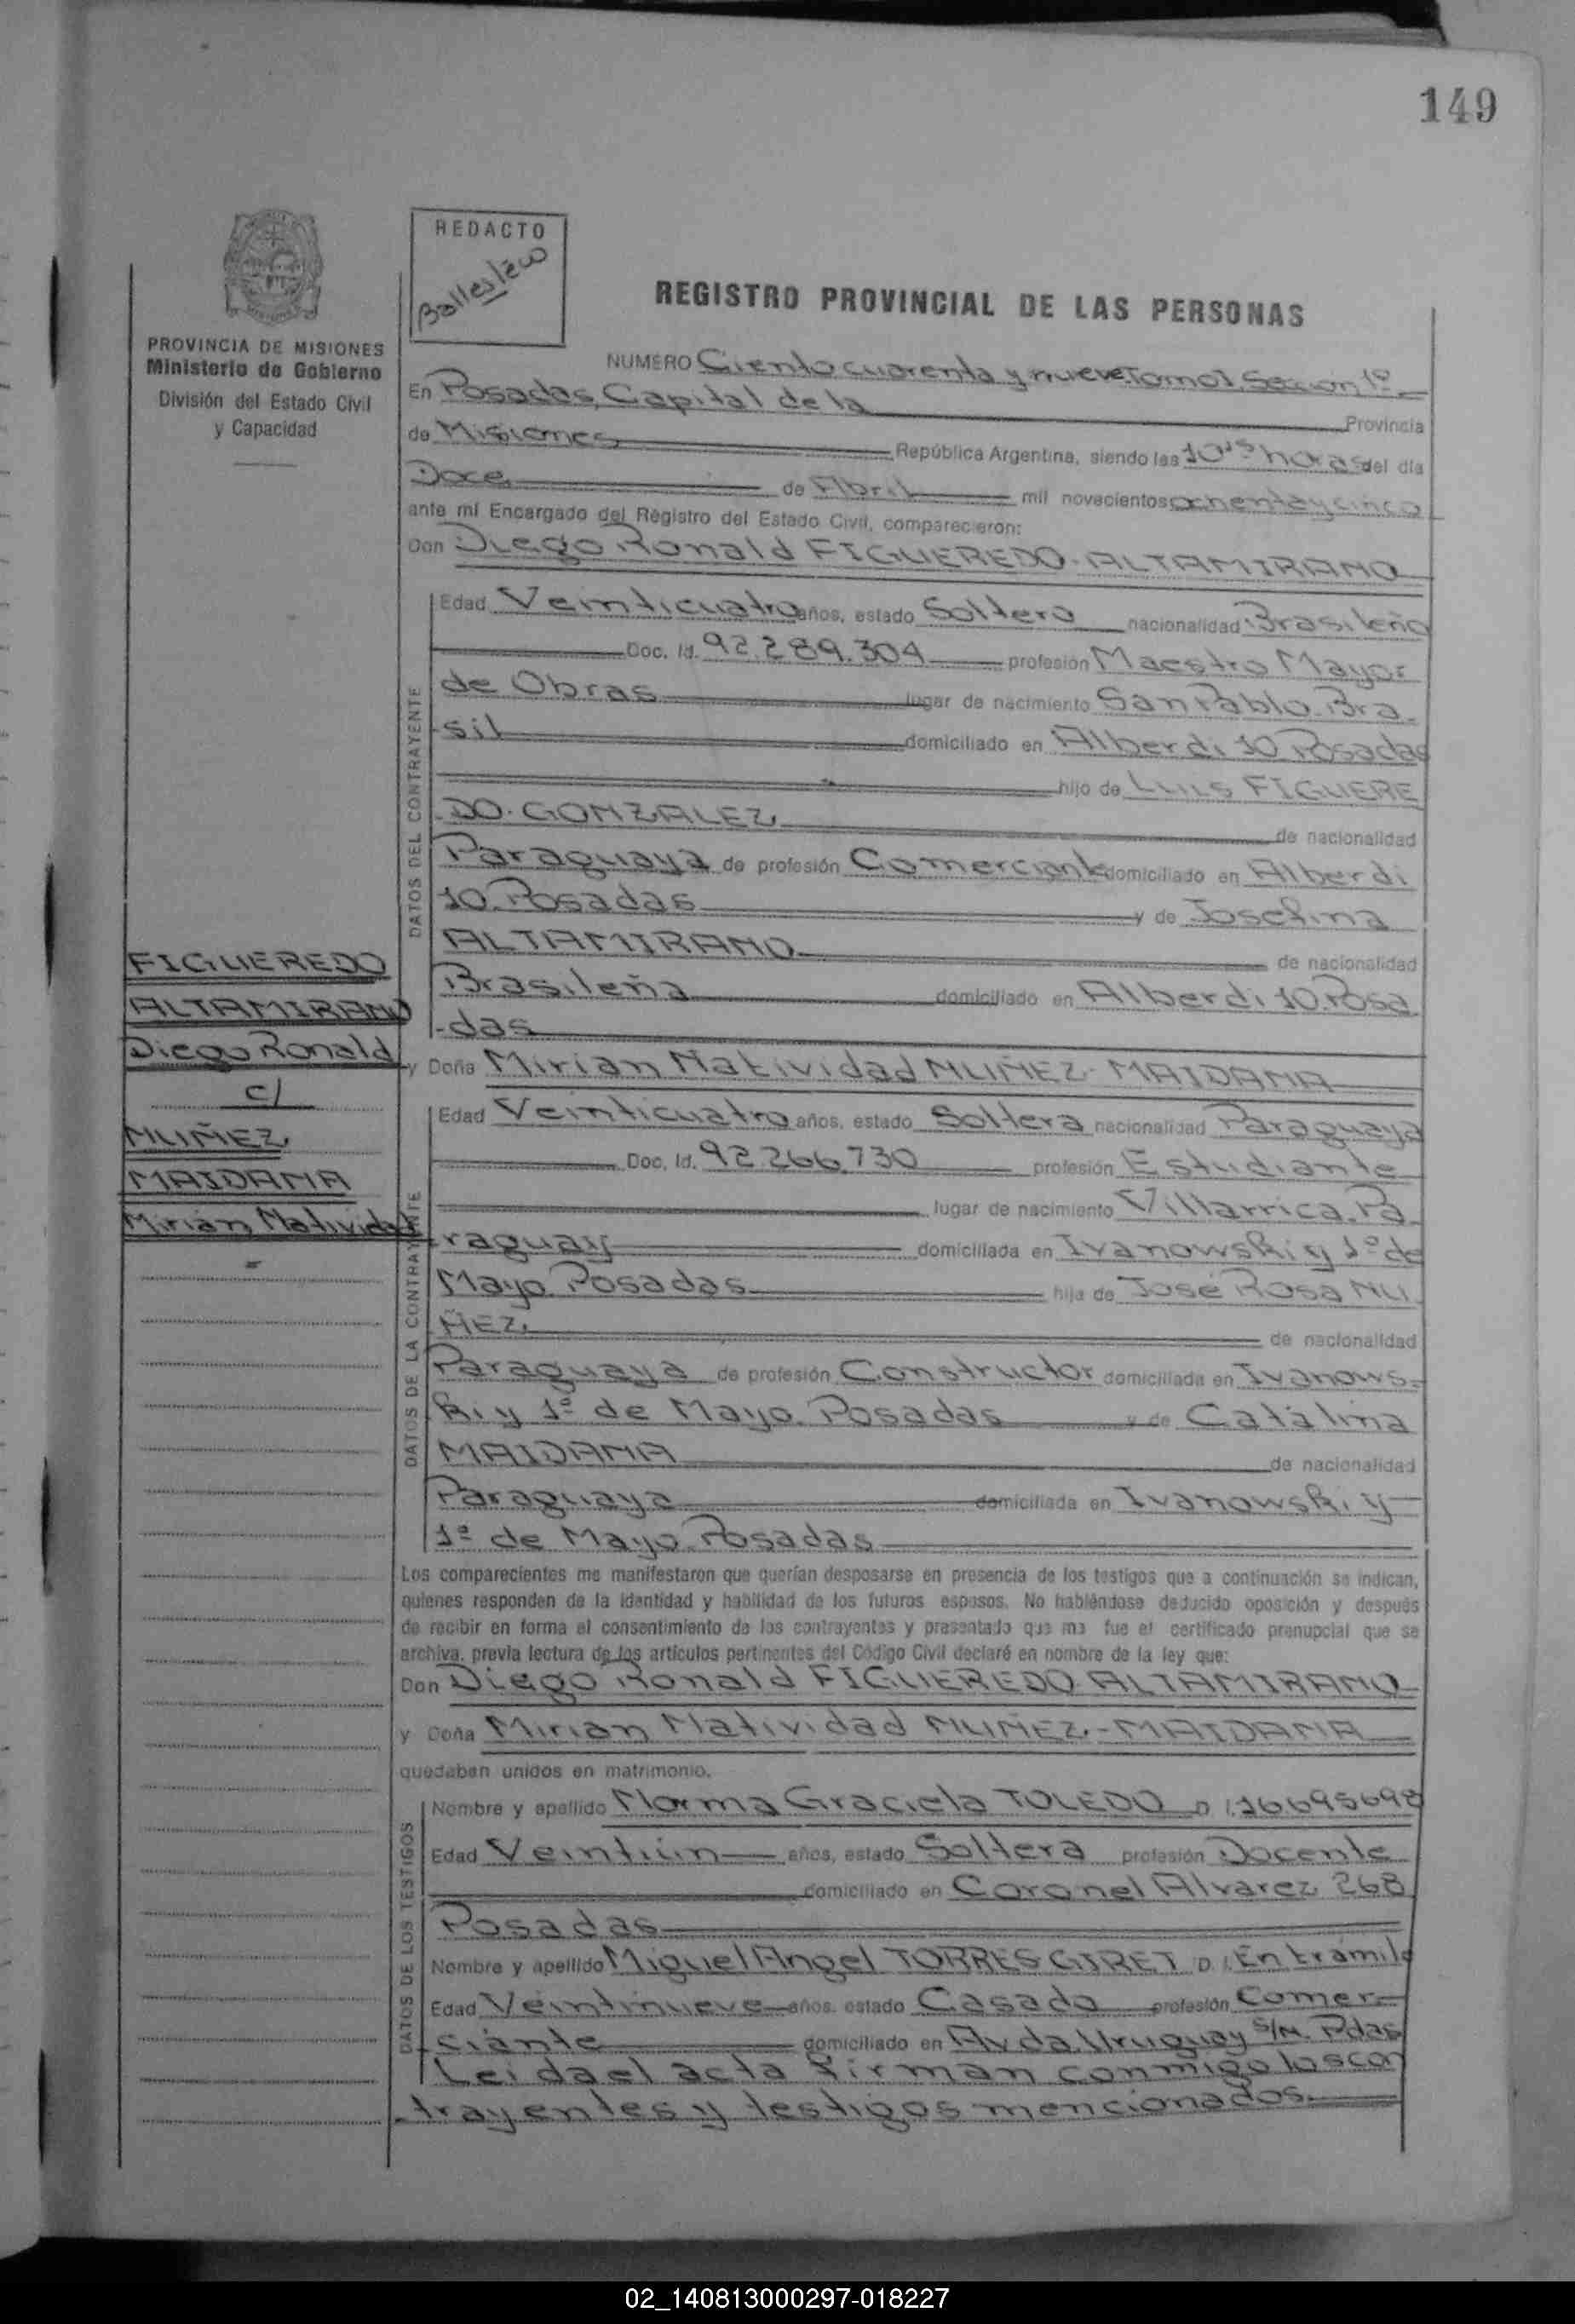 149
REDACTO
REGISTRO PROVINCIAL DE LAS PERSONAS
PROVINCIA DE MISIONES
Ministerio de Gobierno
División del Estado Civil
y Capacidad
NUMERO Ciento cuarenta y nueve. Tomo 1, Sección 1º
En Posadas, Capital de la Provincia
de Misiones República Argentina, siendo las 10 horas del día
Doce de Abril mil novecientos ochenta y cinco
ante mí Encargado del Registro del Estado Civil, comparecieron:
Don Diego Ronald FIGUEREDO-ALTAMIRANO
DATOS DEL CONTRAYENTE
Edad Veinticuatro años, estado Soltero nacionalidad Brasileño
Doc. Id. 92.289.304 profesión Maestro Mayor
de Obras lugar de nacimiento San Pablo. Bra-
sil domiciliado en Alberdi 10. Posadas
hijo de Luis FIGUERE
DO-GONZALEZ de nacionalidad
Paraguaya de profesión Comerciante domiciliado en Alberdi
10. Posadas y de Josefina
ALTAMIRANO de nacionalidad
Brasileña domiciliado en Alberdi 10. Posa
-das
FIGUEREDO
ALTAMIRANO
Diego Ronald
c/
MUÑEZ
MAIDANA
Mirian Natividad
y Doña Mirian Natividad NUÑEZ-MAIDANA
DATOS DE LA CONTRAYENTE
Edad Veinticuatro años, estado Soltera nacionalidad Paraguaya
Doc. Id. 92.266.730 profesión Estudiante
lugar de nacimiento Villarrica. Pa-
raguay domiciliada en Ivanowski y 1º de
Mayo. Posadas hija de José Rosa NU-
ÑEZ de nacionalidad
Paraguaya de profesión Constructor domiciliada en Ivanows-
ki y 1º de Mayo. Posadas y de Catalina
MAIDANA de nacionalidad
Paraguaya domiciliada en Ivanowski y
1º de Mayo. Posadas
Los comparecientes me manifestaron que querían desposarse en presencia de los testigos que a continuación se indican,
quienes responden de la identidad y habilidad de los futuros esposos. No habiéndose deducido oposición y después
de recibir en forma el consentimiento de los contrayentes y presentado que me fue el certificado prenupcial que se
archiva, previa lectura de los artículos pertinentes del Código Civil declaré en nombre de la ley que:
Don Diego Ronald FIGUEREDO-ALTAMIRANO
y Doña Mirian Natividad NUÑEZ-MAIDANA
quedaban unidos en matrimonio.
DATOS DE LOS TESTIGOS
Nombre y apellido Norma Graciela TOLEDO D.I. 16695698
Edad Veintiún años, estado Soltera profesión Docente
domiciliado en Coronel Alvarez 268
Posadas
Nombre y apellido Miguel Angel TORRES GIRET D.I. En trámite
Edad Veintinueve años, estado Casado profesión Comer-
ciante domiciliado en Avda. Uruguay S/N. Pdas
Leida el acta firman conmigo los con
trayentes y testigos mencionados.
02_140813000297-018227